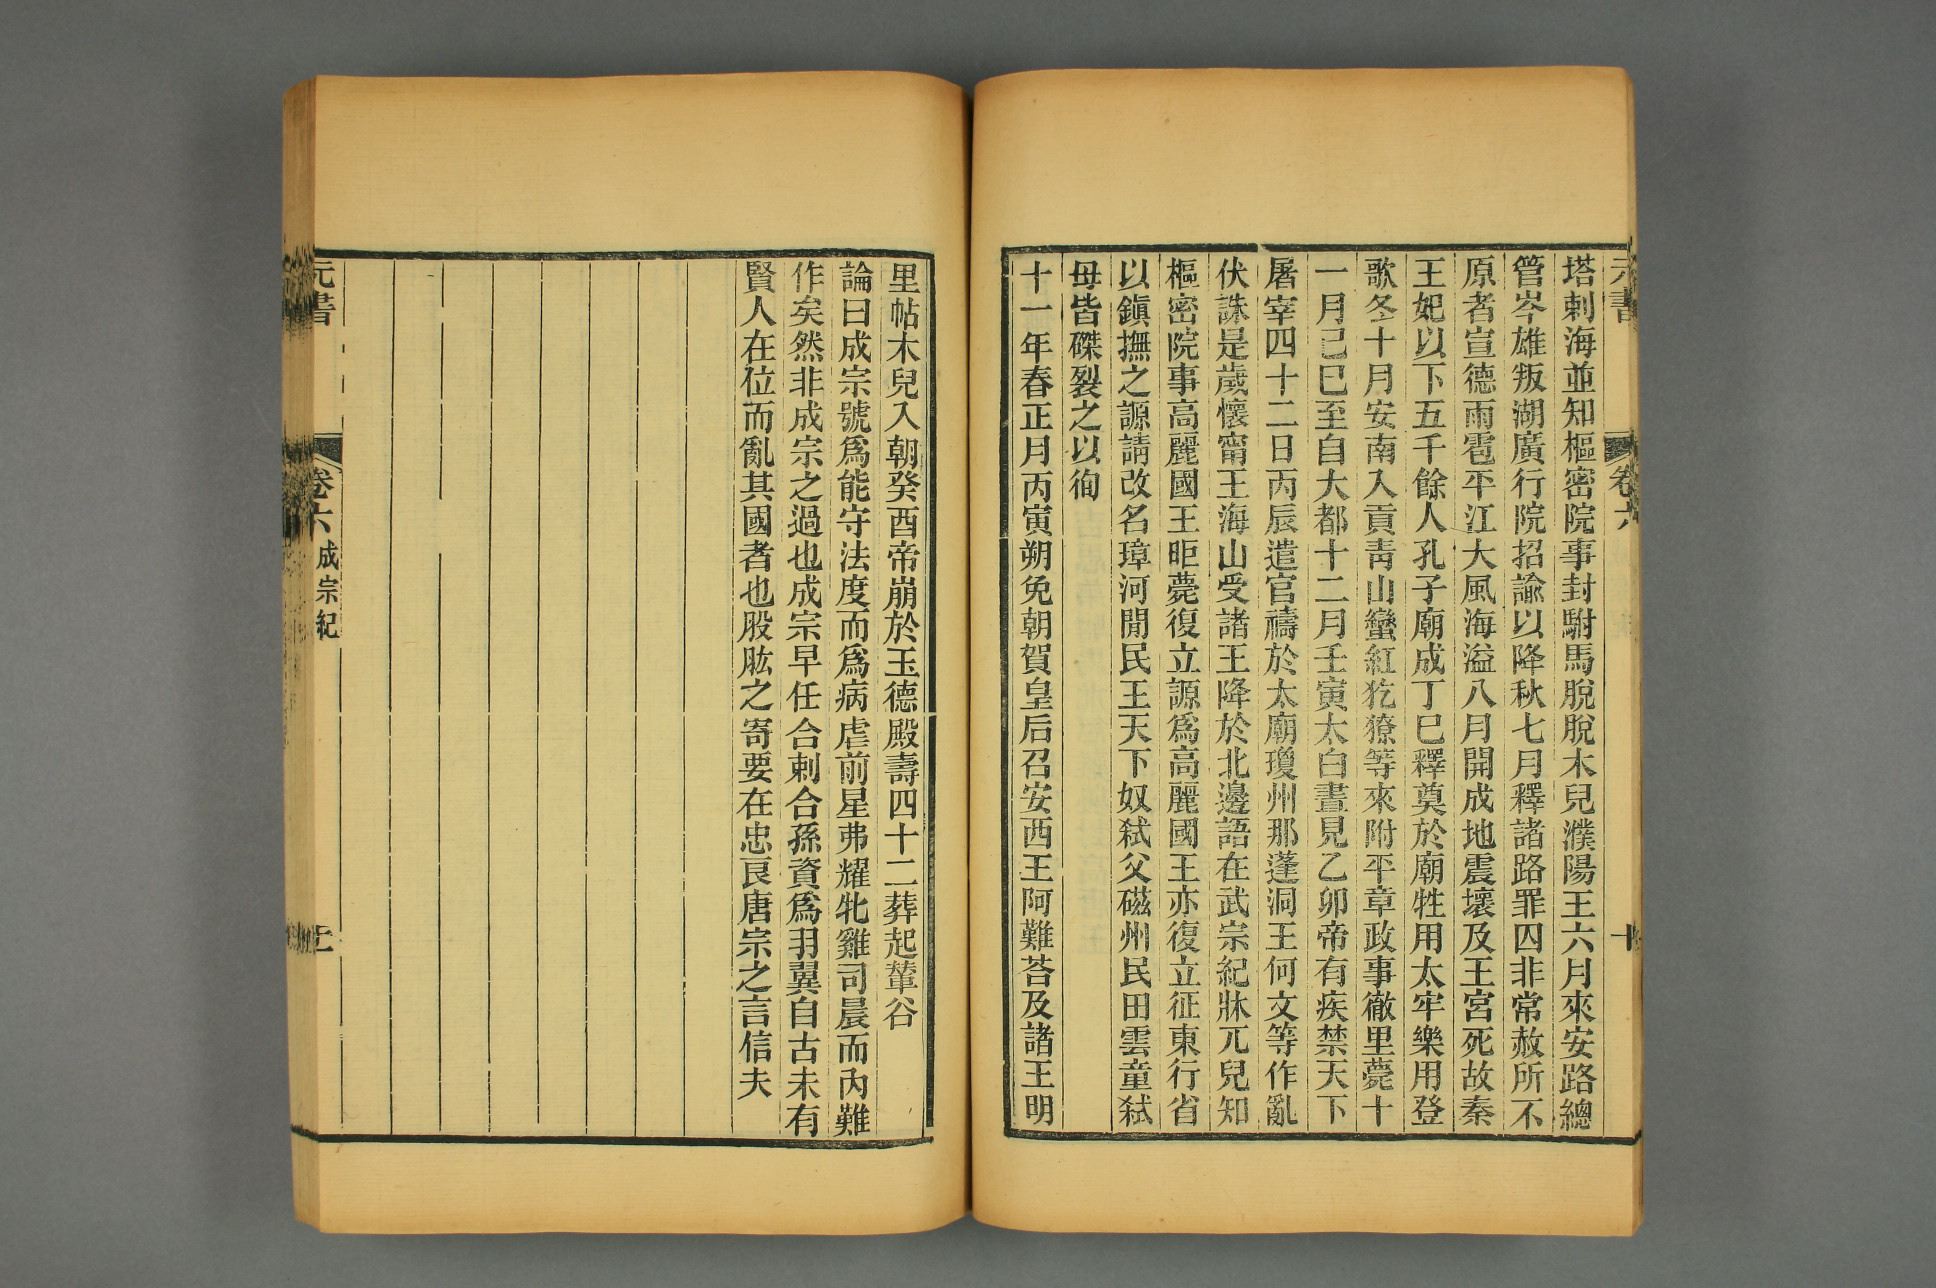 元書
卷六
十
塔剌海並知樞密院事封駙馬脫脫木兒濮陽王六月來安路總
管岑雄叛湖廣行院招諭以降秋七月釋諸路罪囚非常赦所不
原者宣德雨雹平江大風海溢八月開成地震壞及王宮死故秦
王妃以下五千餘人孔子廟成丁巳釋奠於廟牲用太牢樂用登
歌冬十月安南入貢靑山蠻紅犵獠等來附平章政事徹里薨十
一月己巳至自大都十二月壬寅太白晝見乙卯帝有疾禁天下
屠宰四十二日丙辰遣官禱於太廟瓊州那蓬洞王何文等作亂
伏誅是歲懷甯王海山受諸王降於北邊語在武宗紀牀兀兒知
樞密院事高麗國王昛薨復立謜爲高麗國王亦復立征東行省
以鎭撫之謜請改名璋河閒民王天下奴弑父磁州民田雲童弑
母皆磔裂之以徇
十一年春正月丙寅朔免朝賀皇后召安西王阿難荅及諸王明
里帖木兒入朝癸酉帝崩於玉德殿壽四十二葬起輦谷
論曰成宗號爲能守法度而爲病虐前星弗耀牝雞司晨而內難
作矣然非成宗之過也成宗早任合剌合孫資爲羽翼自古未有
賢人在位而亂其國者也股肱之寄要在忠良唐宗之言信夫
元書
卷六 成宗紀
十一